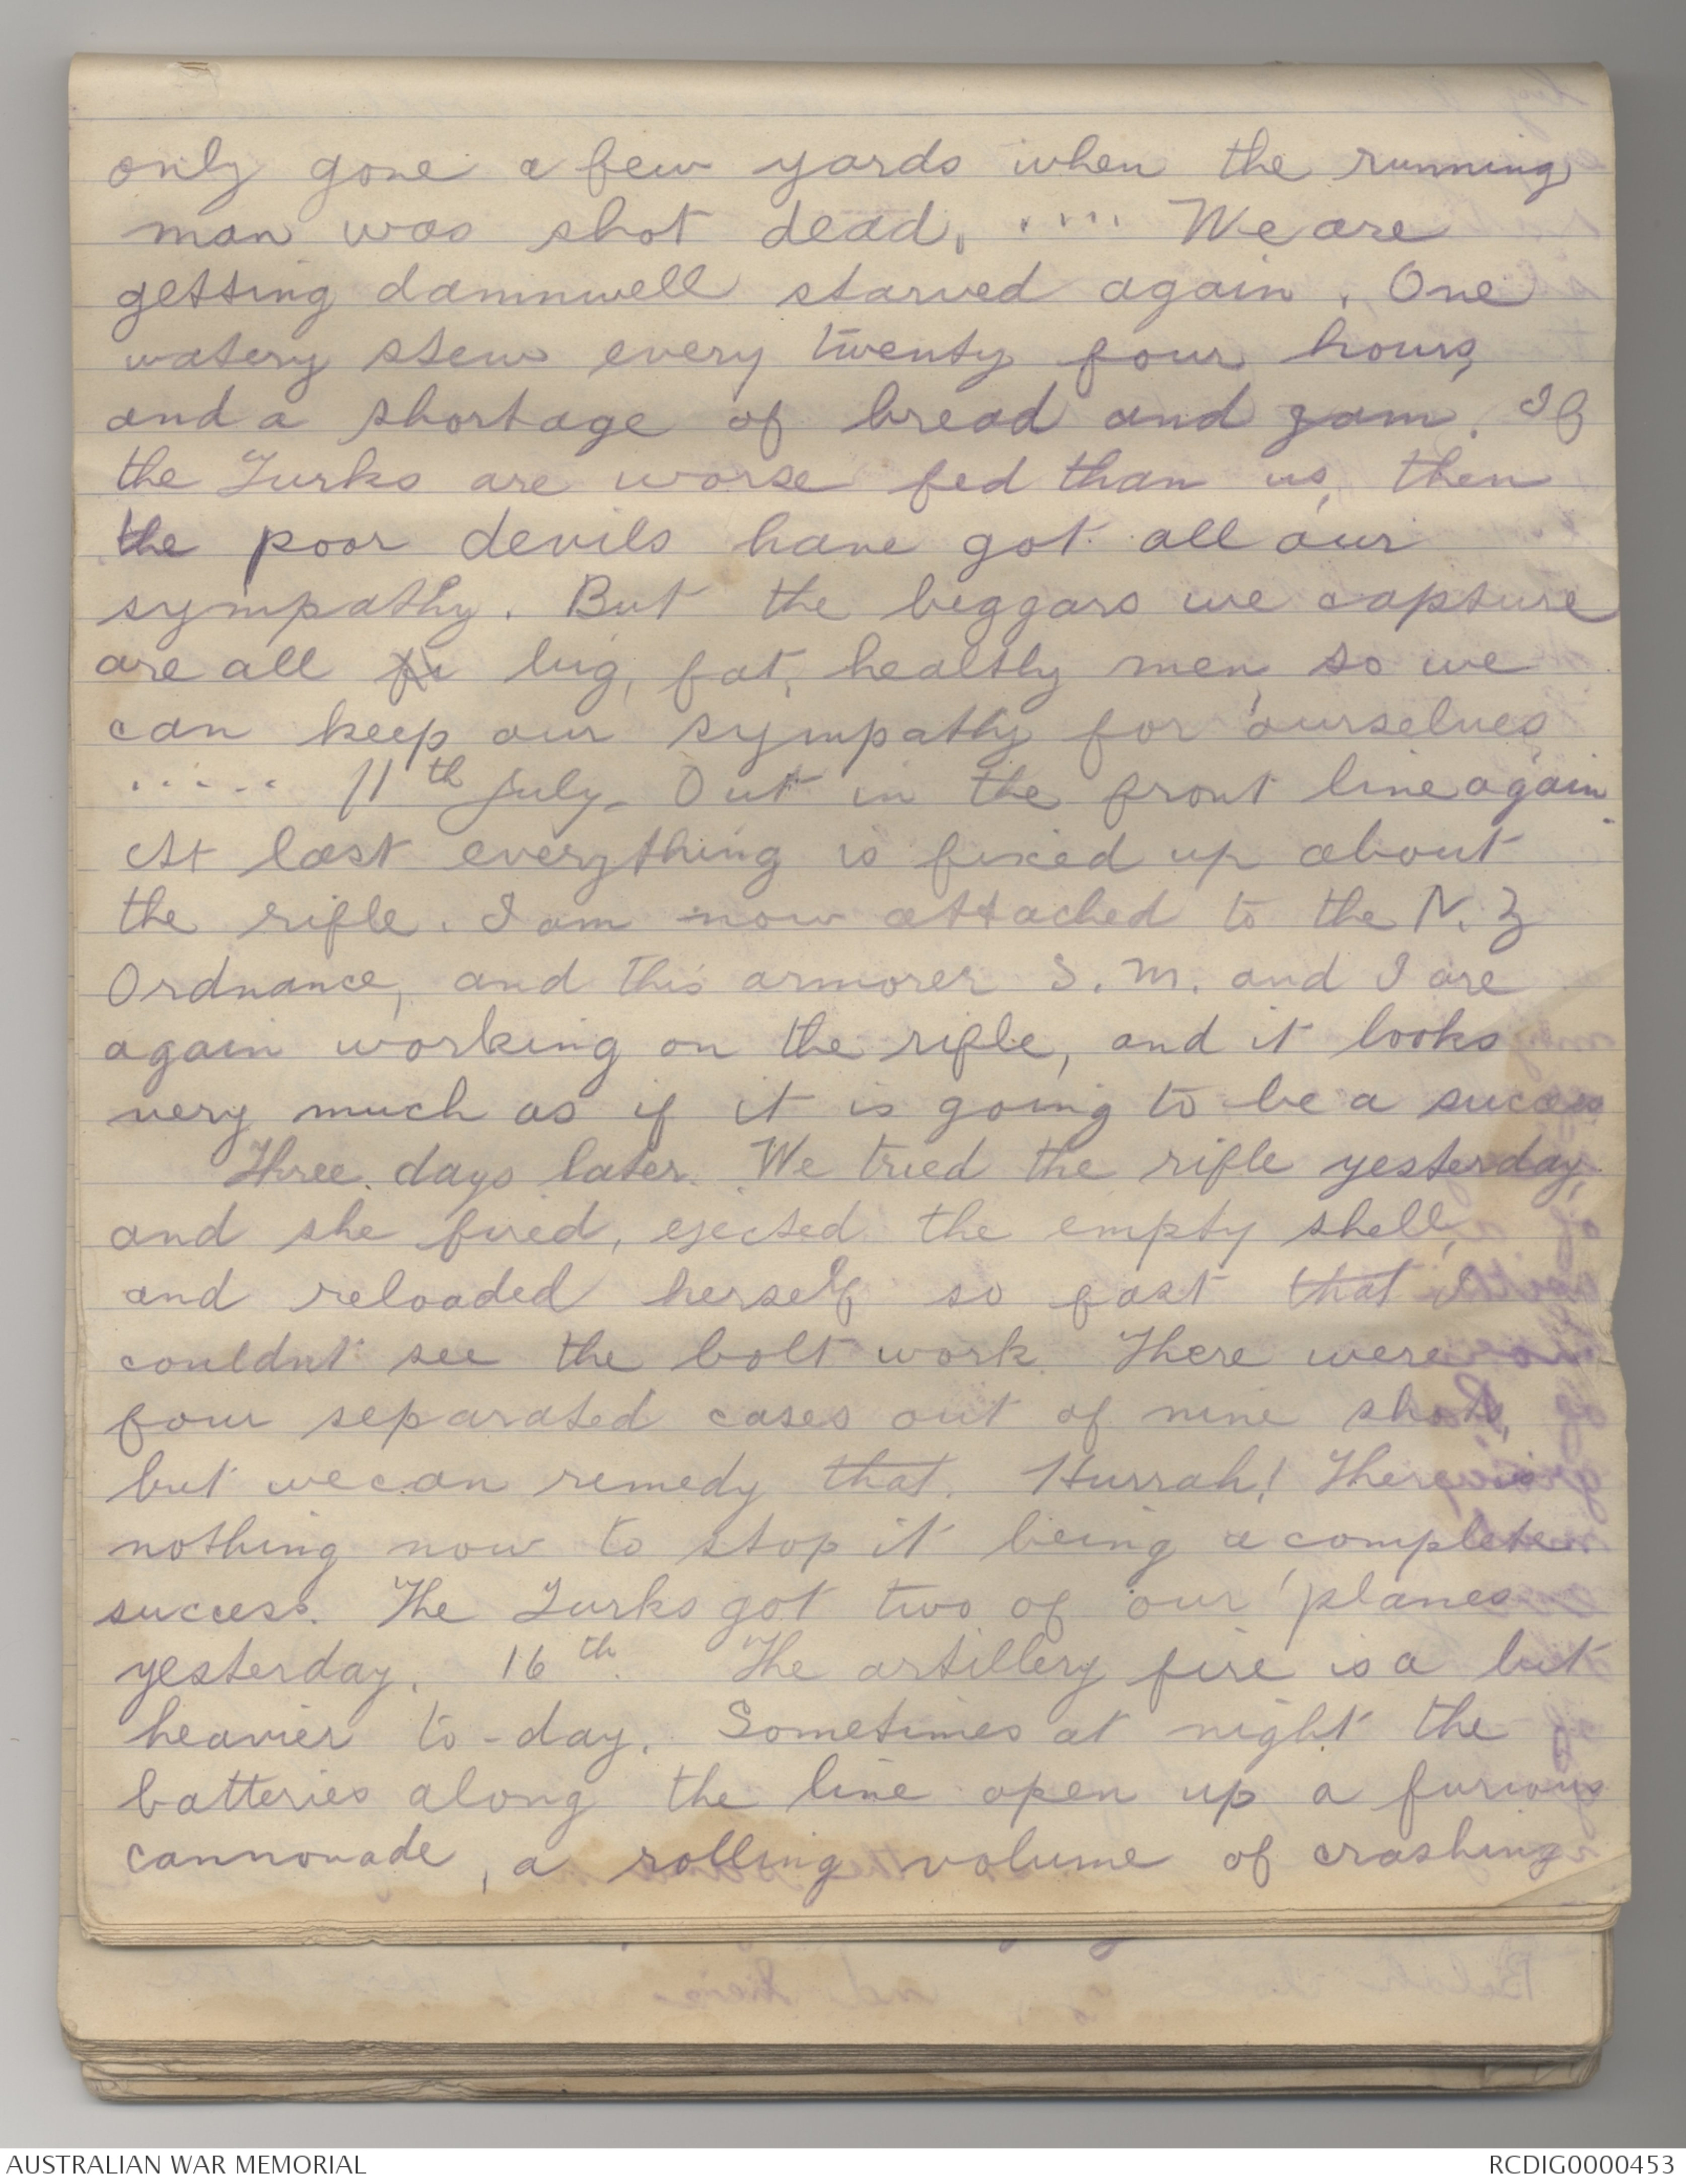 only gone a few yards when the running
man was shot dead. ..... We are
getting damnwell starved again. One
watery stew every twenty four hours,
and a shortage of bread and jam. If
the Turks are worse fed than us, then
the poor devils have got all our
sympathy. But the beggars we capture
are all big, fat, healthy men, so we
can keep our sympathy for ourselves
..... 11th July. Out in the front line again.
At last everything is fixed up about
the rifle. I am now attached to the N.Z
Ordnance, and this armorer S.M. and I are
again working on the rifle, and it looks
very much as if it is going to be a success
Three days later. We tried the rifle yesterday,
and she fired, ejected the empty shell,
and reloaded herself so fast that I
couldn't see the bolt work. There were
four separated cases out of nine shots,
but we can remedy that. Hurrah! There is
nothing now to stop it being a complete
success. The Turks got two of our planes
yesterday. 16th. The artillery fire is a bit
heavier to-day. Sometimes at night the
batteries along the line open up a furious
cannonade, a rolling volume of crashing
AUSTRALIAN WAR MEMORIAL
RCDIG0000453